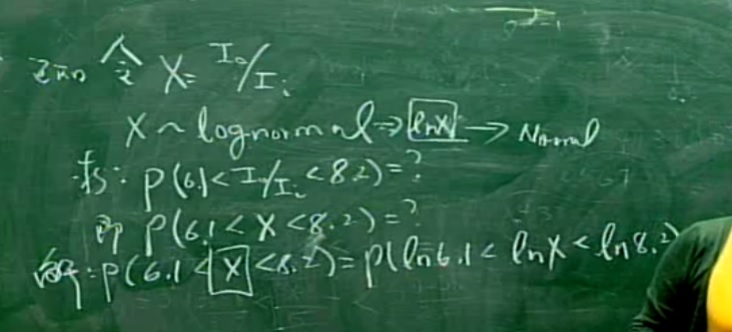 已知 令 X = I₀/Iᵢ
X ~ lognormal ⇒ lnX → Normal
求: P(6.1 < I₀/Iᵢ < 8.2) = ?
即 P(6.1 < X < 8.2) = ?
解: P(6.1 < X < 8.2) = P(ln6.1 < lnX < ln8.2)